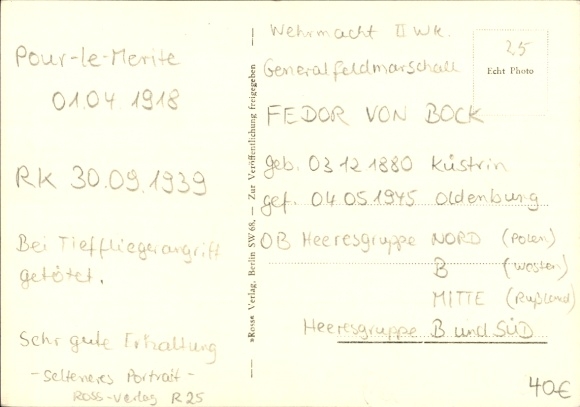 Pour-le-Merite
01.04.1918
RK 30.09.1939
Bei Tieffliegerangriff
getötet.
Sehr gute Erhaltung
- selteneres Portrait -
Ross-Verlag R 25
»Ross« Verlag, Berlin SW 68. — Zur Veröffentlichung freigegeben
Wehrmacht II WK.
Generalfeldmarschall
FEDOR VON BOCK
geb. 03 12 1880 Küstrin
gef. 04 05 1945 Oldenburg
OB Heeresgruppe NORD (Polen)
B (Westen)
MITTE (Rußland)
Heeresgruppe B und SÜD
25
Echt Photo
40€